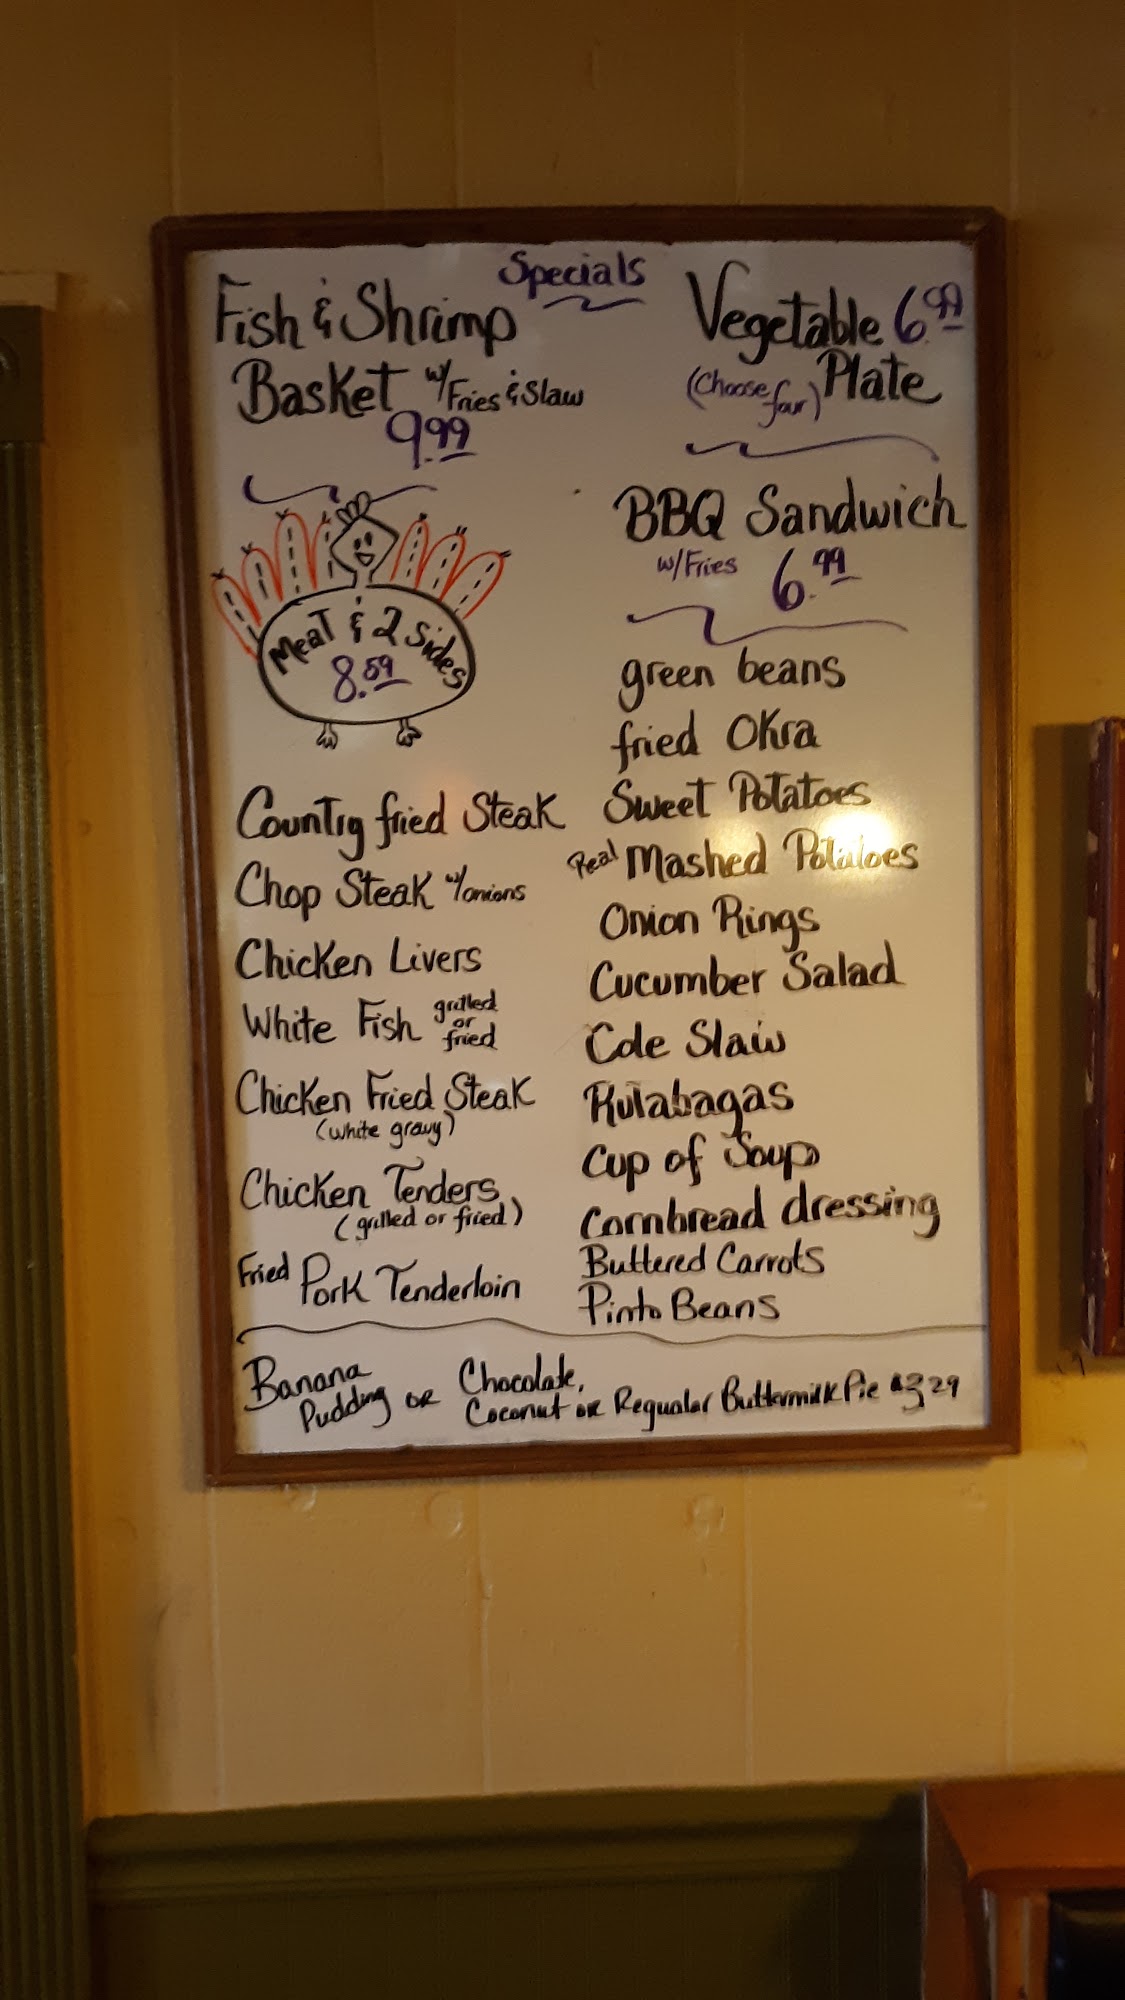 Specials
Fish & Shrimp
Basket w/Fries & Slaw
9.99
Meat & 2 Sides
8.59
Country fried Steak
Chop Steak w/onions
Chicken Livers
White Fish grilled or fried
Chicken Fried Steak
(white gravy)
Chicken Tenders
(grilled or fried)
Fried Pork Tenderloin
Vegetable 6.99
(Choose four) Plate
BBQ Sandwich
w/Fries 6.99
green beans
fried Okra
Sweet Potatoes
Real Mashed Potatoes
Onion Rings
Cucumber Salad
Cole Slaw
Rutabagas
Cup of Soup
Cornbread dressing
Buttered Carrots
Pinto Beans
Banana Pudding or Chocolate,
Coconut or Regualar Buttermilk Pie $3.29